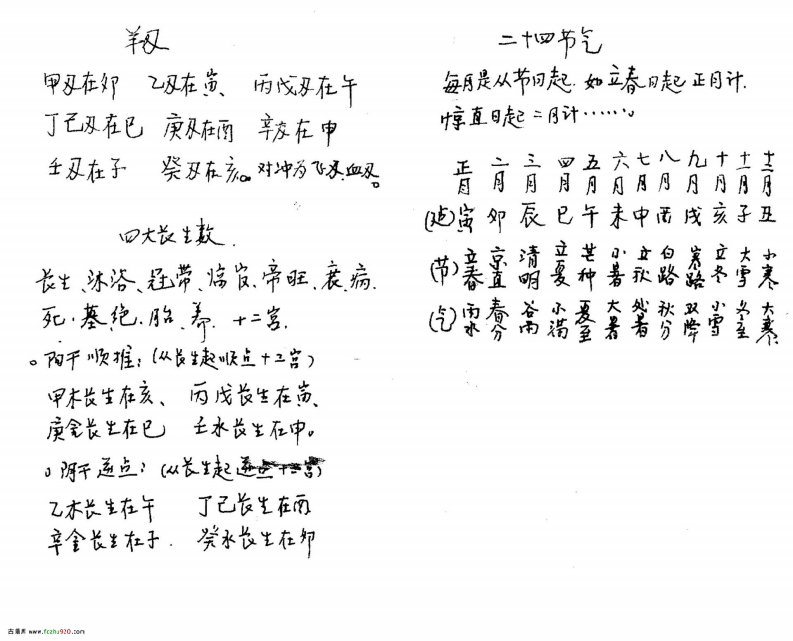 羊刃
甲刃在卯 乙刃在寅、 丙戊刃在午
丁己刃在巳 庚刃在酉 辛刃在申
壬刃在子 癸刃在亥。对冲为飞刃.血刃。
四大长生数.
长生、沐浴、冠带、临官、帝旺、衰、病、
死、墓、绝、胎、养、十二宫.
。阳干顺推:(从长生起顺点十二宫)
甲木长生在亥、 丙戊长生在寅、
庚金长生在巳 壬水长生在申。
。阴干逆点:(从长生起逆点十二宫)
乙木长生在午 丁己长生在酉
辛金长生在子. 癸水长生在卯
二十四节气
每月是从节日起. 如立春日起 正月计.
惊直日起二月计……。
正月 二月 三月 四月 五月 六月 七月 八月 九月 十月 十一月 十二月
寅 卯 辰 巳 午 未 申 酉 戌 亥 子 丑
(节) 立春 京直 清明 立夏 芒种 小暑 立秋 白路 寒路 立冬 大雪 小寒
(气) 雨水 春分 谷雨 小满 夏至 大暑 处暑 秋分 双降 小雪 冬至 大寒
www.fczhu920.com